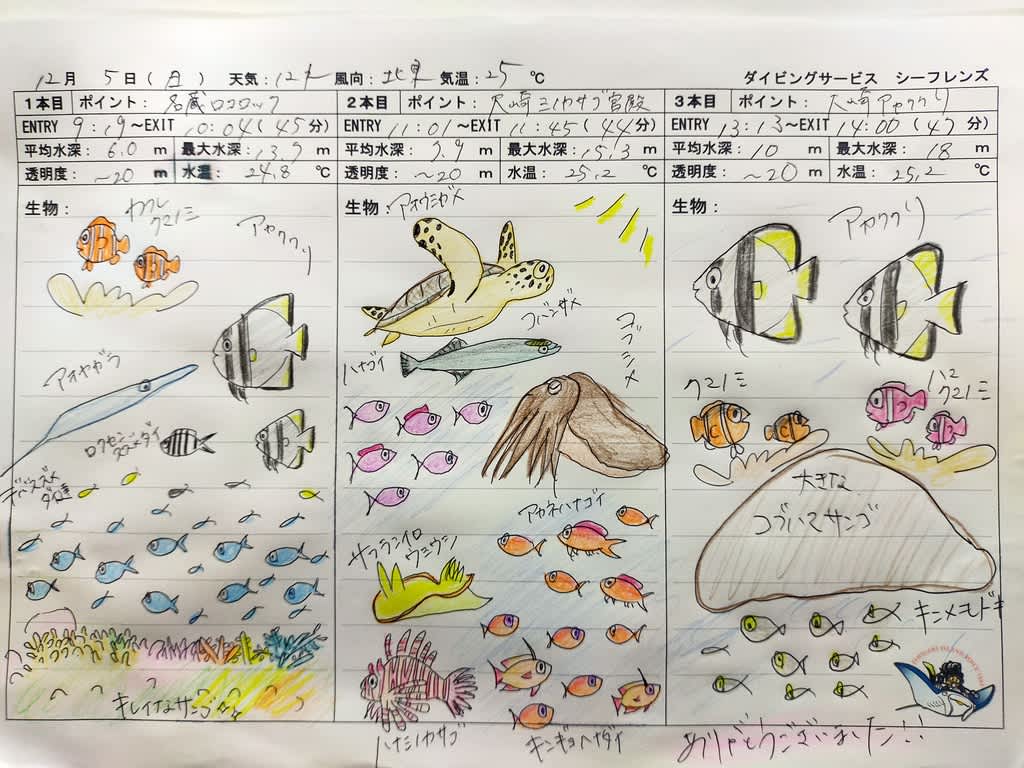 12月 5日(日) 天気: 風向:北東 気温:25℃ ダイビングサービス シーフレンズ
1本目 ポイント: 名蔵ロココロック
ENTRY 9:19～EXIT 10:04(45分)
平均水深: 6.0 m 最大水深:13.9 m
透明度: ～20 m 水温: 24.8 ℃
生物:
ワクレ
クマノミ
アカククリ
アオヤガラ
ロクセン
スズメダイ
デバスズメ
ダイ達
キレイなサンゴ
2本目 ポイント: 大崎ミノカサゴ宮殿
ENTRY 11:01～EXIT 11:45(44分)
平均水深: 9.9 m 最大水深:15.3 m
透明度: ～20 m 水温: 25.2 ℃
生物: アオウミガメ
コバンザメ
コブシメ
ハナゴイ
アカネハナゴイ
サフランイロ
ウミウシ
ハナミノカサゴ
キンギョハナダイ
3本目 ポイント: 大崎アカククリ
ENTRY 13:13～EXIT 14:00(47分)
平均水深: 10 m 最大水深: 18 m
透明度: ～20 m 水温: 25.2 ℃
生物:
アカククリ
クマノミ
ハマ
クマノミ
大きな
コブハマサンゴ
キンメモドキ
ありがとうございました!!